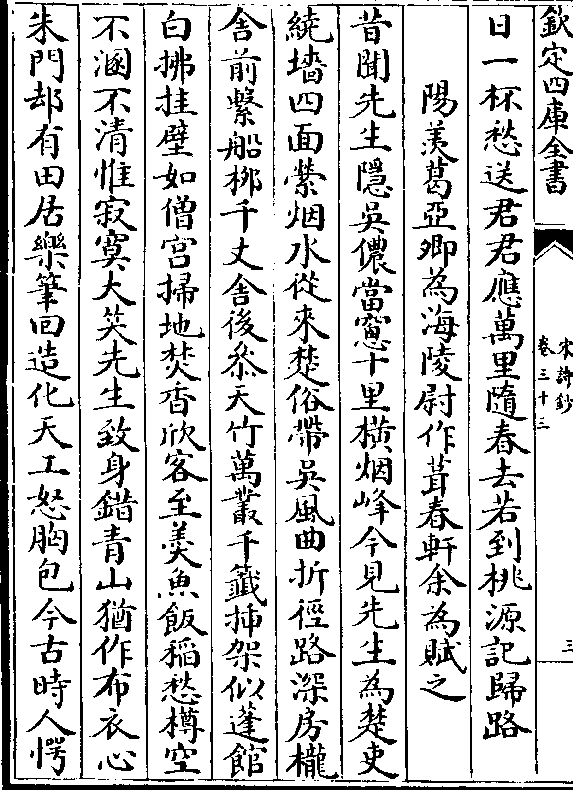 欽定四庫全書
宋詩鈔
卷三十三
三
日一杯愁送君君應萬里隨春去若到桃源記歸路
陽羨葛亞卿為海陵尉作葺春軒余為賦之
昔聞先生隱吳儂當窻十里橫烟峰今見先生為楚吏
繞墻四面縈烟水從來楚俗帶吳風曲折徑路深房櫳
舍前繫船栁千丈舍後叅天竹萬叢千籤挿架似蓬館
白拂挂壁如僧宮掃地焚香欣客至羮魚飯稻愁樽空
不溷不清惟寂寞大笑先生致身錯青山猶作布衣心
朱門却有田居樂筆回造化天工怒胸包今古時人愕